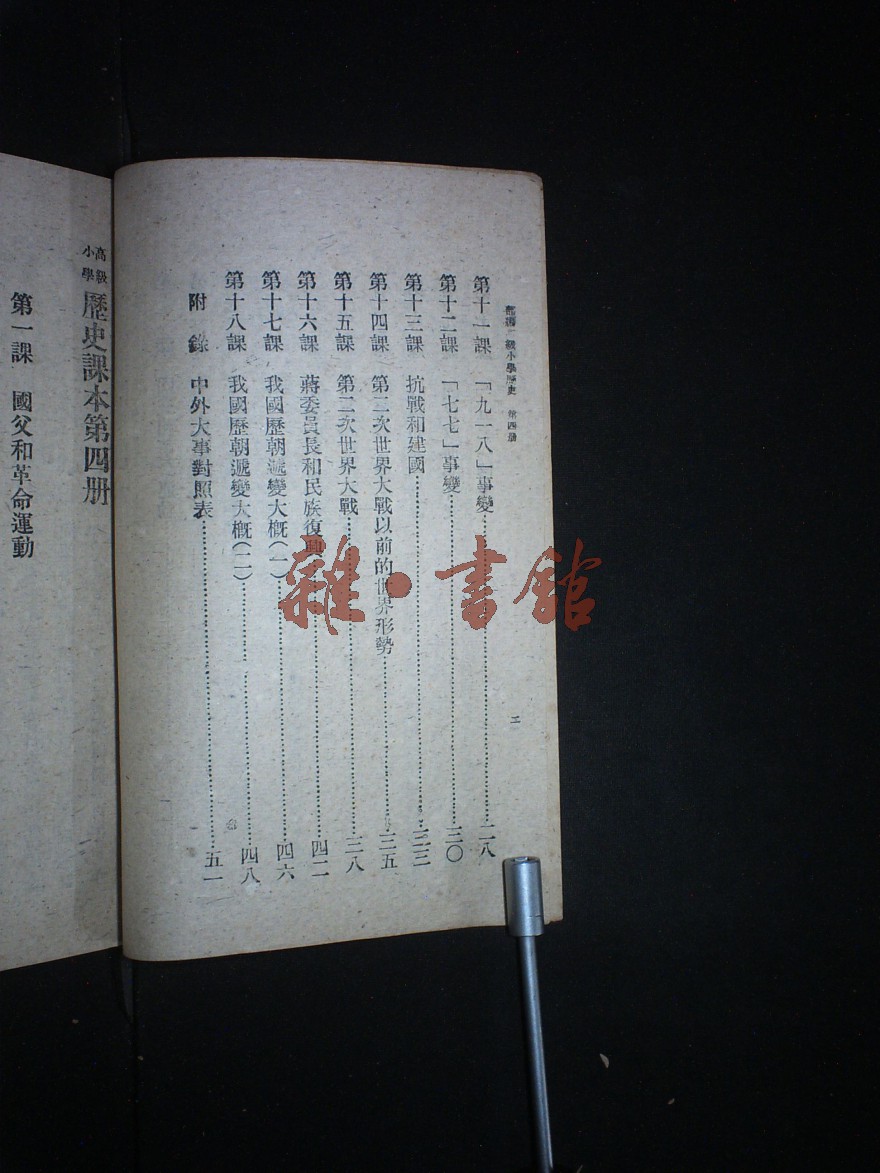 小學歷史 第四册
二
第十一課 「九一八」事變……二八
第十二課 「七七」事變……三〇
第十三課 抗戰和建國……三三
第十四課 第二次世界大戰以前的世界形勢……三五
第十五課 第二次世界大戰……三八
第十六課 蔣委員長和民族復興……四二
第十七課 我國歷朝遞變大概(一)……四六
第十八課 我國歷朝遞變大概(二)……四八
附錄 中外大事對照表……五一
高級小學 歷史課本第四册
第一課 國父和革命運動
雜·書館